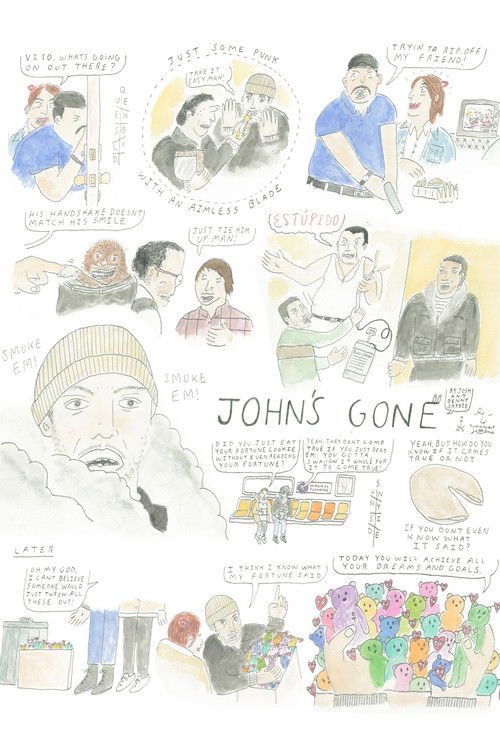 VITO, WHATS GOING
ON OUT THERE?
JUST SOME PUNK
TAKE IT
EASY MAN!
WITH AN AIMLESS BLADE
TRYIN TA RIP OFF
MY FRIEND!
QUEENS BLVD
HIS HANDSHAKE DOESNT
MATCH HIS SMILE
JUST TIE HIM
UP MAN!
ESTÚPIDO
SMOKE
EM!
SMOKE
EM!
JOHN'S GONE
BY JOSH
AND
BENNY
SAFDIE
DID YOU JUST EAT
YOUR FORTUNE COOKIE
WITHOUT EVEN READING
YOUR FORTUNE?
YEAH, THEY DONT COME
TRUE IF YOU JUST READ
EM. YOU GOTTA
SWALLOW IT WHOLE FOR
IT TO COME TRUE!
YEAH, BUT HOW DO YOU
KNOW IF IT COMES
TRUE OR NOT
IF YOU DONT EVEN
KNOW WHAT
IT SAID?
LATER
OH MY GOD,
I CANT BELIEVE
SOMEONE WOULD
JUST THROW ALL
THESE OUT!
I THINK I KNOW WHAT
MY FORTUNE SAID
TODAY YOU WILL ACHIEVE ALL
YOUR DREAMS AND GOALS.